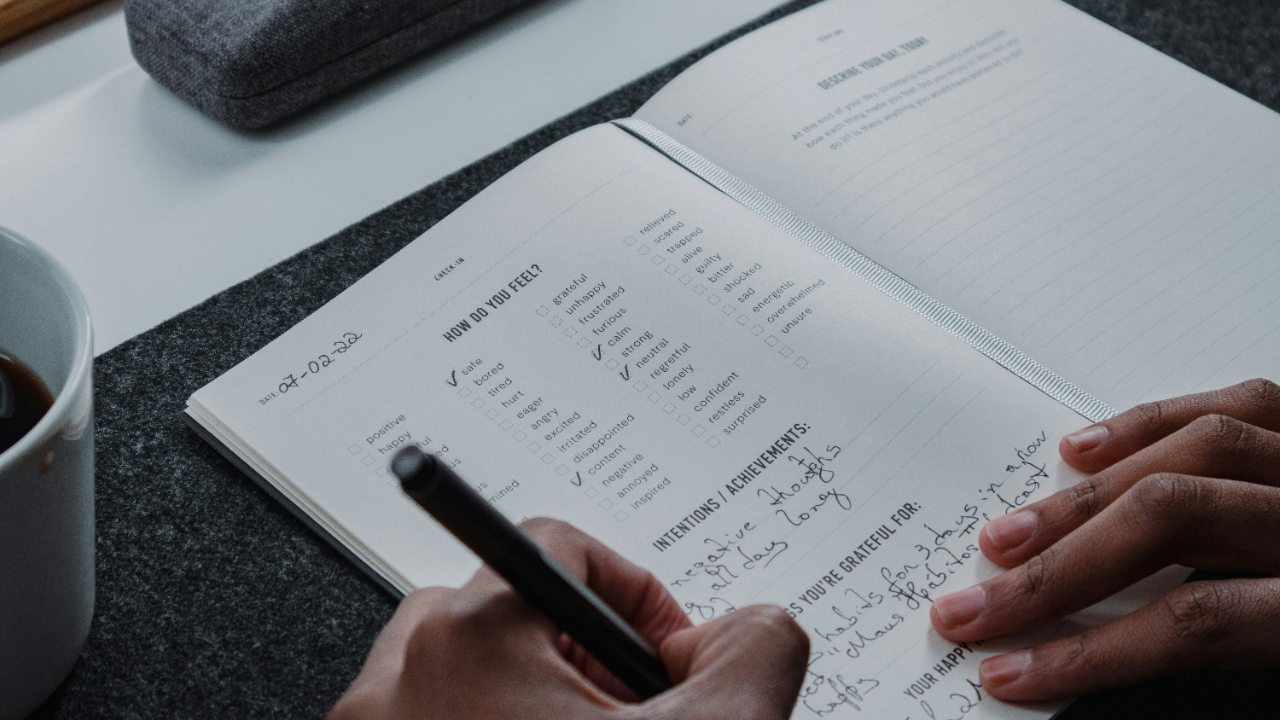 CHECK-IN
DATE: 07-02-22
HOW DO YOU FEEL?
positive
happy
safe
bored
tired
hurt
eager
angry
excited
irritated
disappointed
content
negative
annoyed
inspired
grateful
unhappy
frustrated
furious
calm
strong
neutral
regretful
lonely
low
confident
restless
surprised
relieved
scared
trapped
alive
guilty
bitter
shocked
sad
energetic
overwhelmed
unsure
INTENTIONS / ACHIEVEMENTS:
negative thoughs
all day long
YOU'RE GRATEFUL FOR:
habits for 3 days in a row
habits
happy
YOUR HAPPY
CHECK-IN
DATE
DESCRIBE YOUR DAY, TODAY
At the end of your day, timestamp each activity and describe
how each thing made you feel. Did you enjoy it? Why did you
do it? Is there anything you would have preferred to do?